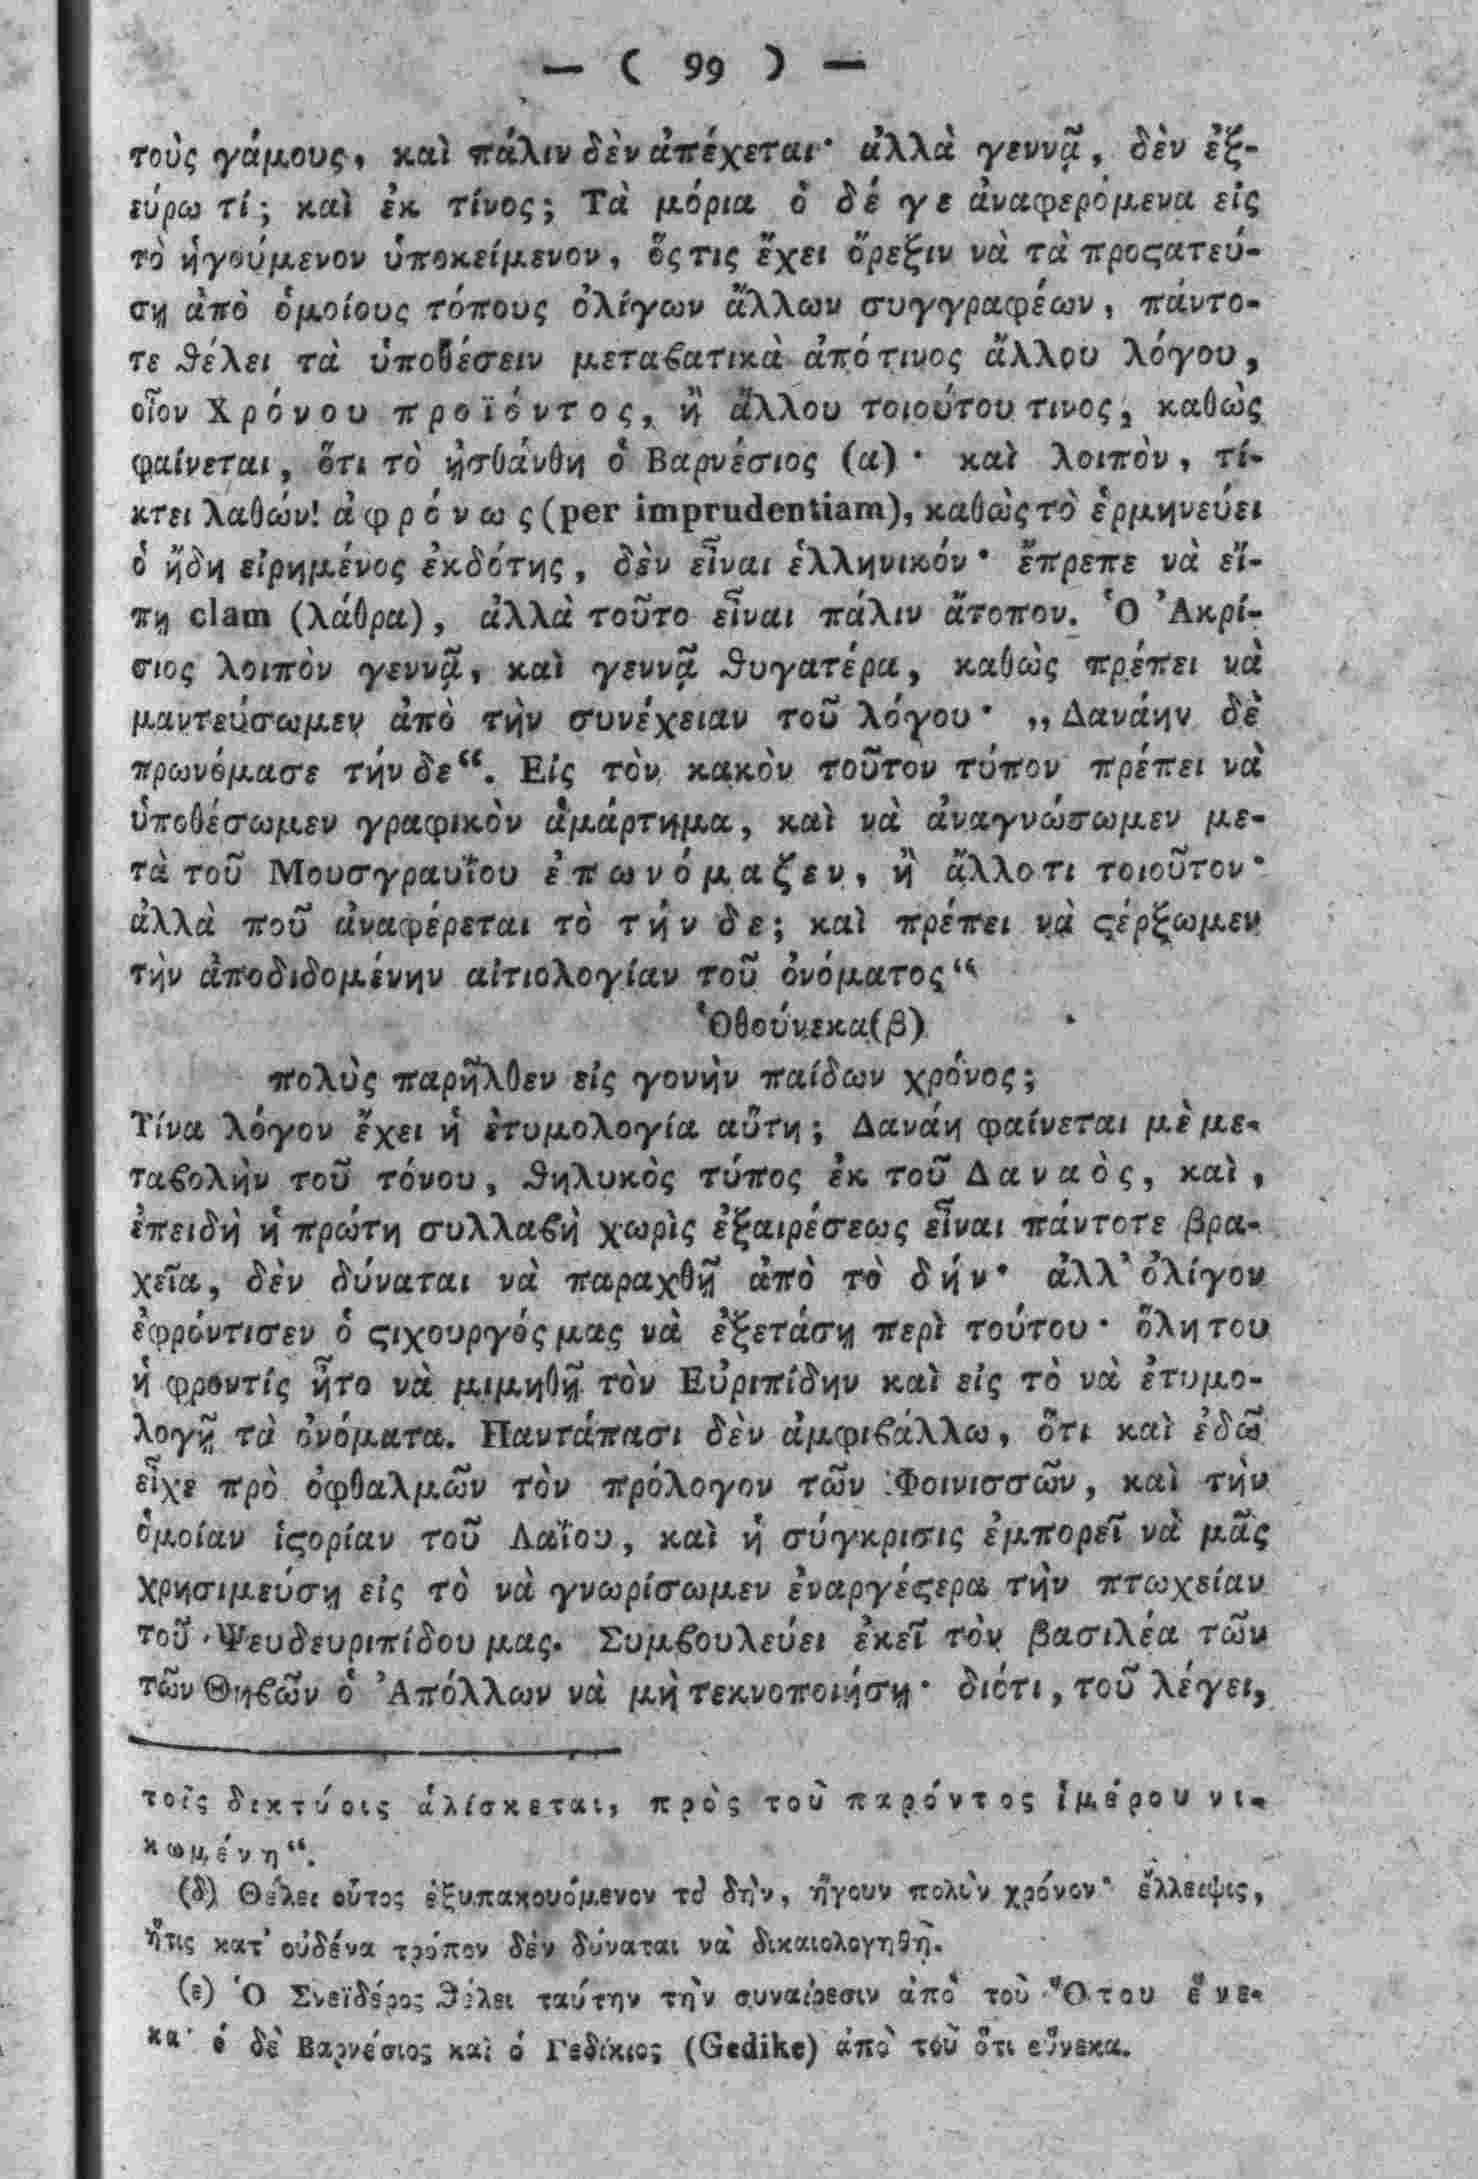 — ( 99 ) —
τοὺς γάμους, καὶ πάλιν δὲν ἀπέχεται· ἀλλὰ γεννᾷ, δὲν ἐξ-
εύρω τί; καὶ ἐκ τίνος; Τὰ μόρια ὁ δέ γε ἀναφερόμενα εἰς
τὸ ἡγούμενον ὑποκείμενον, ὅςτις ἔχει ὄρεξιν νὰ τὰ προςατεύ-
σῃ ἀπὸ ὁμοίους τόπους ὀλίγων ἄλλων συγγραφέων, πάντο-
τε θέλει τὰ ὑποθέσειν μεταβατικὰ ἀπό τινος ἄλλου λόγου,
οἷον Χρόνου προϊόντος, ἢ ἄλλου τοιούτου τινος, καθὼς
φαίνεται, ὅτι τὸ ᾐσθάνθη ὁ Βαρνέσιος (α)· καὶ λοιπὸν, τί-
κτει λαθών! ἀφρόνως (per imprudentiam), καθὼς τὸ ἑρμηνεύει
ὁ ἤδη εἰρημένος ἐκδότης, δὲν εἶναι ἑλληνικόν· ἔπρεπε νὰ εἴ-
πῃ clam (λάθρα), ἀλλὰ τοῦτο εἶναι πάλιν ἄτοπον. Ὁ Ἀκρί-
σιος λοιπὸν γεννᾷ, καὶ γεννᾷ θυγατέρα, καθὼς πρέπει νὰ
μαντεύσωμεν ἀπὸ τὴν συνέχειαν τοῦ λόγου· „Δανάην δὲ
πρωνόμασε τήνδε“. Εἰς τὸν κακὸν τοῦτον τύπον πρέπει νὰ
ὑποθέσωμεν γραφικὸν ἁμάρτημα, καὶ νὰ ἀναγνώσωμεν με-
τὰ τοῦ Μουσγραυΐου ἐπωνόμαζεν, ἢ ἄλλο τι τοιοῦτον·
ἀλλὰ ποῦ ἀναφέρεται τὸ τήνδε; καὶ πρέπει νὰ ςέρξωμεν
τὴν ἀποδιδομένην αἰτιολογίαν τοῦ ὀνόματος“
Ὁθούνεκα(β)
πολὺς παρῆλθεν εἰς γονὴν παίδων χρόνος;
Τίνα λόγον ἔχει ἡ ἐτυμολογία αὕτη; Δανάη φαίνεται μὲ με-
ταβολὴν τοῦ τόνου, θηλυκὸς τύπος ἐκ τοῦ Δαναὸς, καὶ,
ἐπειδὴ ἡ πρώτη συλλαβὴ χωρὶς ἐξαιρέσεως εἶναι πάντοτε βρα-
χεῖα, δὲν δύναται νὰ παραχθῇ ἀπὸ τὸ δήν· ἀλλ’ ὀλίγον
ἐφρόντισεν ὁ ςιχουργός μας νὰ ἐξετάσῃ περὶ τούτου· ὅλη του
ἡ φροντίς ἦτο νὰ μιμηθῇ τὸν Εὐριπίδην καὶ εἰς τὸ νὰ ἐτυμο-
λογῇ τὰ ὀνόματα. Παντάπασι δὲν ἀμφιβάλλω, ὅτι καὶ ἐδῶ
εἶχε πρὸ ὀφθαλμῶν τὸν πρόλογον τῶν Φοινισσῶν, καὶ τὴν
ὁμοίαν ἱςορίαν τοῦ Λαΐου, καὶ ἡ σύγκρισις ἐμπορεῖ νὰ μᾶς
χρησιμεύσῃ εἰς τὸ νὰ γνωρίσωμεν ἐναργέςερα τὴν πτωχείαν
τοῦ Ψευδευριπίδου μας. Συμβουλεύει ἐκεῖ τὸν βασιλέα τῶν
τῶν Θηβῶν ὁ Ἀπόλλων νὰ μὴ τεκνοποιήσῃ· διότι, τοῦ λέγει,
τοῖς δικτύοις ἁλίσκεται, πρὸς τοῦ παρόντος ἱμέρου νι-
κωμένη“.
(δ) Θέλει οὗτος ἐξυπακουόμενον τὸ δὴν, ἤγουν πολὺν χρόνον· ἔλλειψις,
ἥτις κατ’ οὐδένα τρόπον δὲν δύναται νὰ δικαιολογηθῇ.
(ε) Ὁ Σνεϊδέρος θέλει ταύτην τὴν συναίρεσιν ἀπὸ τοῦ Ὅτου ἕνε-
κα· ὁ δὲ Βαρνέσιος καὶ ὁ Γεδίκιος (Gedike) ἀπὸ τοῦ ὅτι εὕνεκα.